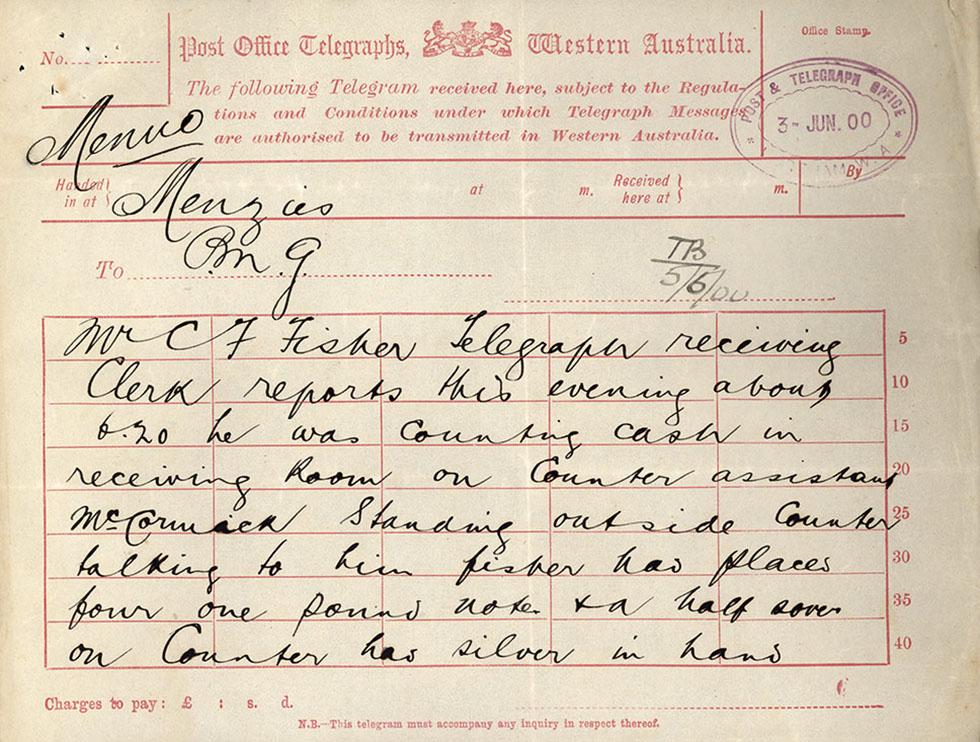 No.
Post Office Telegraphs, Western Australia.
Office Stamp.
The following Telegram received here, subject to the Regula-
tions and Conditions under which Telegraph Messages
are authorised to be transmitted in Western Australia.
POST & TELEGRAPH OFFICE
3- JUN. 00
W.A
Memo
Handed in at } Menzies at m. Received here at } m. By
To P.M.G
TB
5/6/00
Mr C F Fisher Telegraph receiving 5
Clerk reports this evening about 10
6.20 he was counting cash in 15
receiving Room on Counter assistant 20
McCormack Standing outside Counter 25
talking to him fisher had placed 30
four one pound notes & a half sover 35
on Counter had silver in hand 40
Charges to pay: £ : s. d.
N.B.—This telegram must accompany any inquiry in respect thereof.